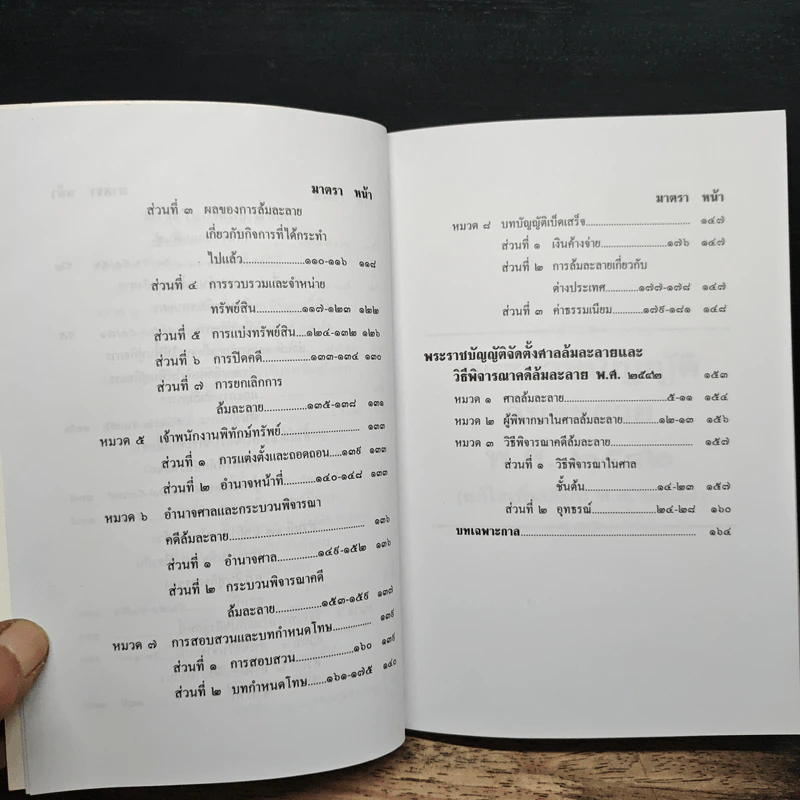 มาตรา หน้า
ส่วนที่ ๓ ผลของการล้มละลาย
เกี่ยวกับกิจการที่ได้กระทำ
ไปแล้ว......................๑๑๐-๑๑๖ ๑๑๘
ส่วนที่ ๔ การรวบรวมและจำหน่าย
ทรัพย์สิน................๑๑๗-๑๒๓ ๑๒๒
ส่วนที่ ๕ การแบ่งทรัพย์สิน...๑๒๔-๑๓๒ ๑๒๖
ส่วนที่ ๖ การปิดคดี..............๑๓๓-๑๓๔ ๑๓๐
ส่วนที่ ๗ การยกเลิกการ
ล้มละลาย...............๑๓๕-๑๓๘ ๑๓๑
หมวด ๕ เจ้าพนักงานพิทักษ์ทรัพย์......................... ๑๓๓
ส่วนที่ ๑ การแต่งตั้งและถอดถอน....๑๓๙ ๑๓๓
ส่วนที่ ๒ อำนาจหน้าที่..........๑๔๐-๑๔๘ ๑๓๓
หมวด ๖ อำนาจศาลและกระบวนพิจารณา
คดีล้มละลาย........................................ ๑๓๖
ส่วนที่ ๑ อำนาจศาล.............๑๔๙-๑๕๒ ๑๓๖
ส่วนที่ ๒ กระบวนพิจารณาคดี
ล้มละลาย................๑๕๓-๑๕๙ ๑๓๗
หมวด ๗ การสอบสวนและบทกำหนดโทษ.............. ๑๓๙
ส่วนที่ ๑ การสอบสวน....................๑๖๐ ๑๓๙
ส่วนที่ ๒ บทกำหนดโทษ.......๑๖๑-๑๗๕ ๑๔๐
มาตรา หน้า
หมวด ๘ บทบัญญัติเบ็ดเสร็จ.............................. ๑๔๗
ส่วนที่ ๑ เงินค้างจ่าย......................๑๗๖ ๑๔๗
ส่วนที่ ๒ การล้มละลายเกี่ยวกับ
ต่างประเทศ............๑๗๗-๑๗๘ ๑๔๗
ส่วนที่ ๓ ค่าธรรมเนียม..........๑๗๙-๑๘๑ ๑๔๘
พระราชบัญญัติจัดตั้งศาลล้มละลายและ
วิธีพิจารณาคดีล้มละลาย พ.ศ. ๒๕๔๒ ๑๕๓
หมวด ๑ ศาลล้มละลาย..............................๕-๑๑ ๑๕๔
หมวด ๒ ผู้พิพากษาในศาลล้มละลาย..........๑๒-๑๓ ๑๕๖
หมวด ๓ วิธีพิจารณาคดีล้มละลาย....................... ๑๕๗
ส่วนที่ ๑ วิธีพิจารณาในศาล
ชั้นต้น.......................๑๔-๒๓ ๑๕๗
ส่วนที่ ๒ อุทธรณ์....................๒๔-๒๘ ๑๖๐
บทเฉพาะกาล................................................... ๑๖๔